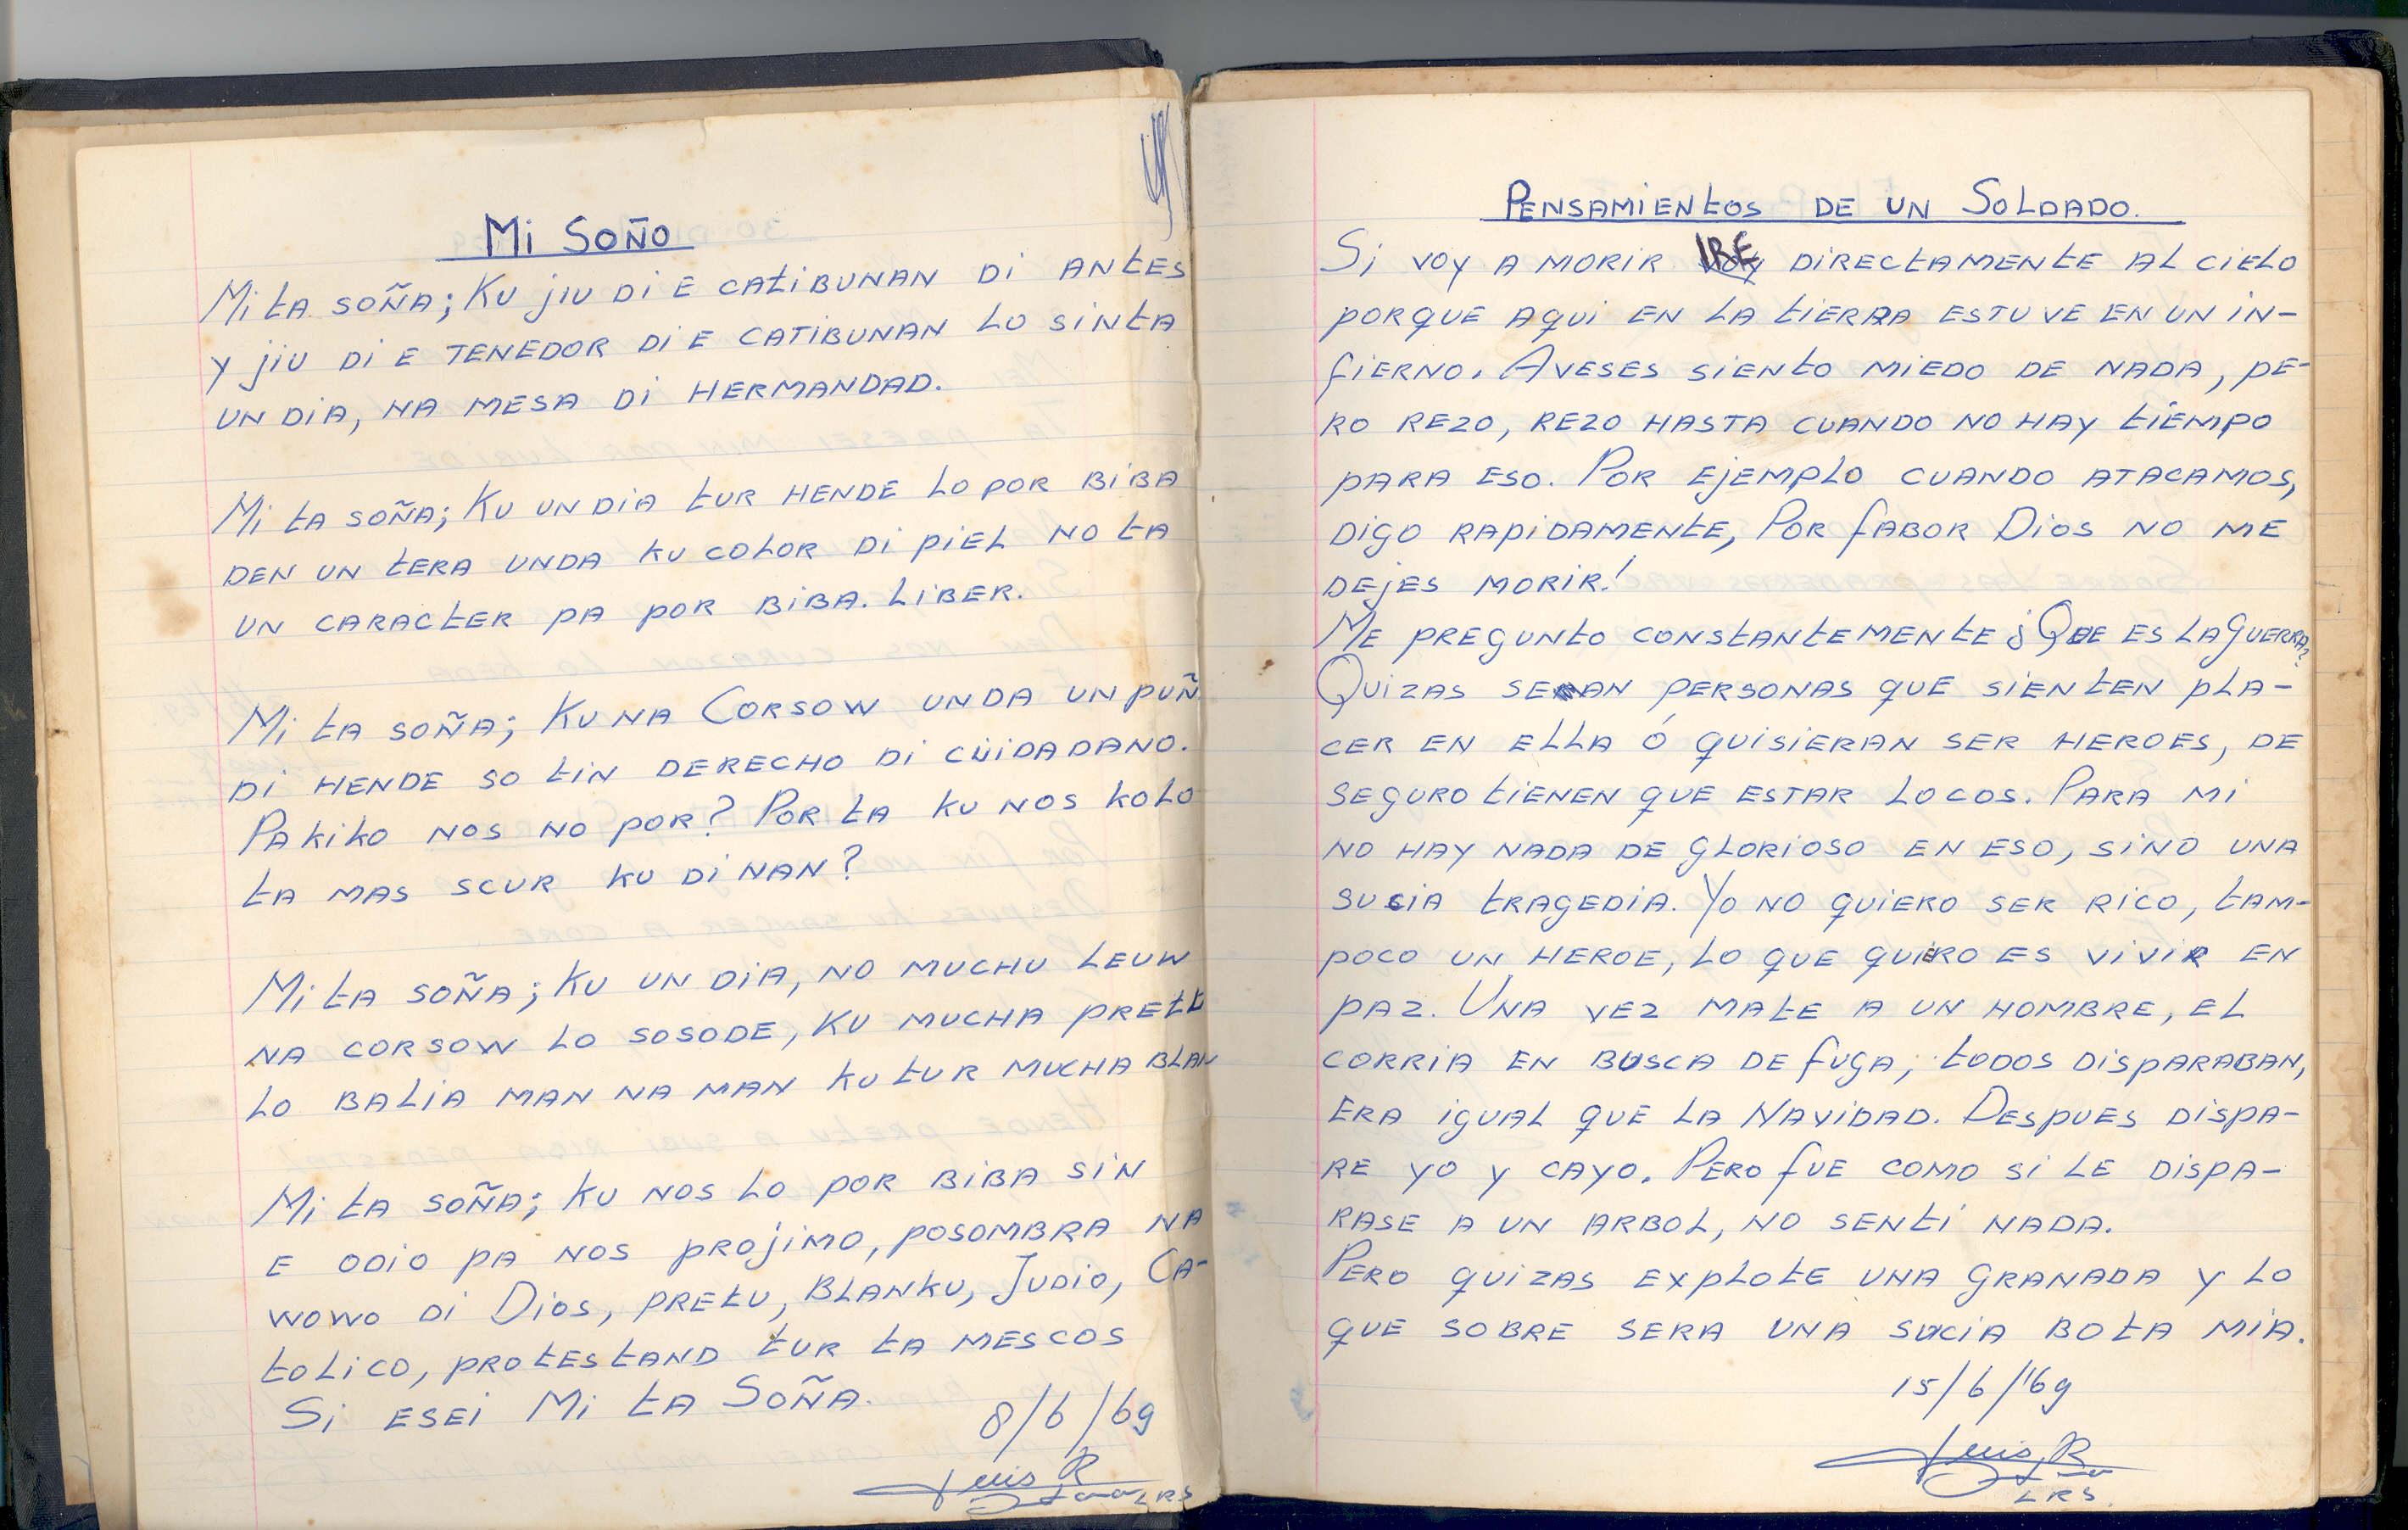 Mi Soño
Mi ta soña; Ku jiu di e catibunan di antes
y jiu di e tenedor di e catibunan lo sinta
un dia, na mesa di hermandad.
Mi ta soña; Ku un dia tur hende lo por biba
den un tera unda ku color di piel no ta
un caracter pa por biba. liber.
Mi ta soña; Ku na Corsow unda un puñ
di hende so tin derecho di cüidadano.
Pakiko nos no por? Por ta ku nos kolo
ta mas scur ku di nan?
Mi ta soña; Ku un dia, no muchu leuw
na corsow lo sosode, ku mucha pretu
lo balia man na man ku tur mucha blan
Mi ta soña; ku nos lo por biba sin
e odio pa nos projimo, posombra na
wowo di Dios, pretu, blanku, Judio, Ca-
tolico, protestand tur ta mescos
Si esei Mi ta Soña.
8/6/69
Luis R
LRS
Pensamientos de un Soldado.
Si voy a morir IRE voy directamente al cielo
porque aqui en la tierra estuve en un in-
fierno. Aveses siento miedo de nada, pe-
ro rezo, rezo hasta cuando no hay tiempo
para eso. Por ejemplo cuando atacamos,
digo rapidamente, Por fabor Dios no me
dejes morir!
Me pregunto constantemente ¿Que es la guerra?
Quizas seran personas que sienten pla-
cer en ella ó quisieran ser heroes, de
seguro tienen que estar locos. Para mi
no hay nada de glorioso en eso, sino una
sucia tragedia. Yo no quiero ser rico, tam-
poco un heroe, lo que quiero es vivir en
paz. Una vez mate a un hombre, el
corria en busca de fuga; todos disparaban,
era igual que la Navidad. Despues dispa-
re yo y cayo. Pero fue como si le dispa-
rase a un arbol, no senti nada.
Pero quizas explote una granada y lo
que sobre sera una sucia bota mia.
15/6/'69
Luis R
LRS.